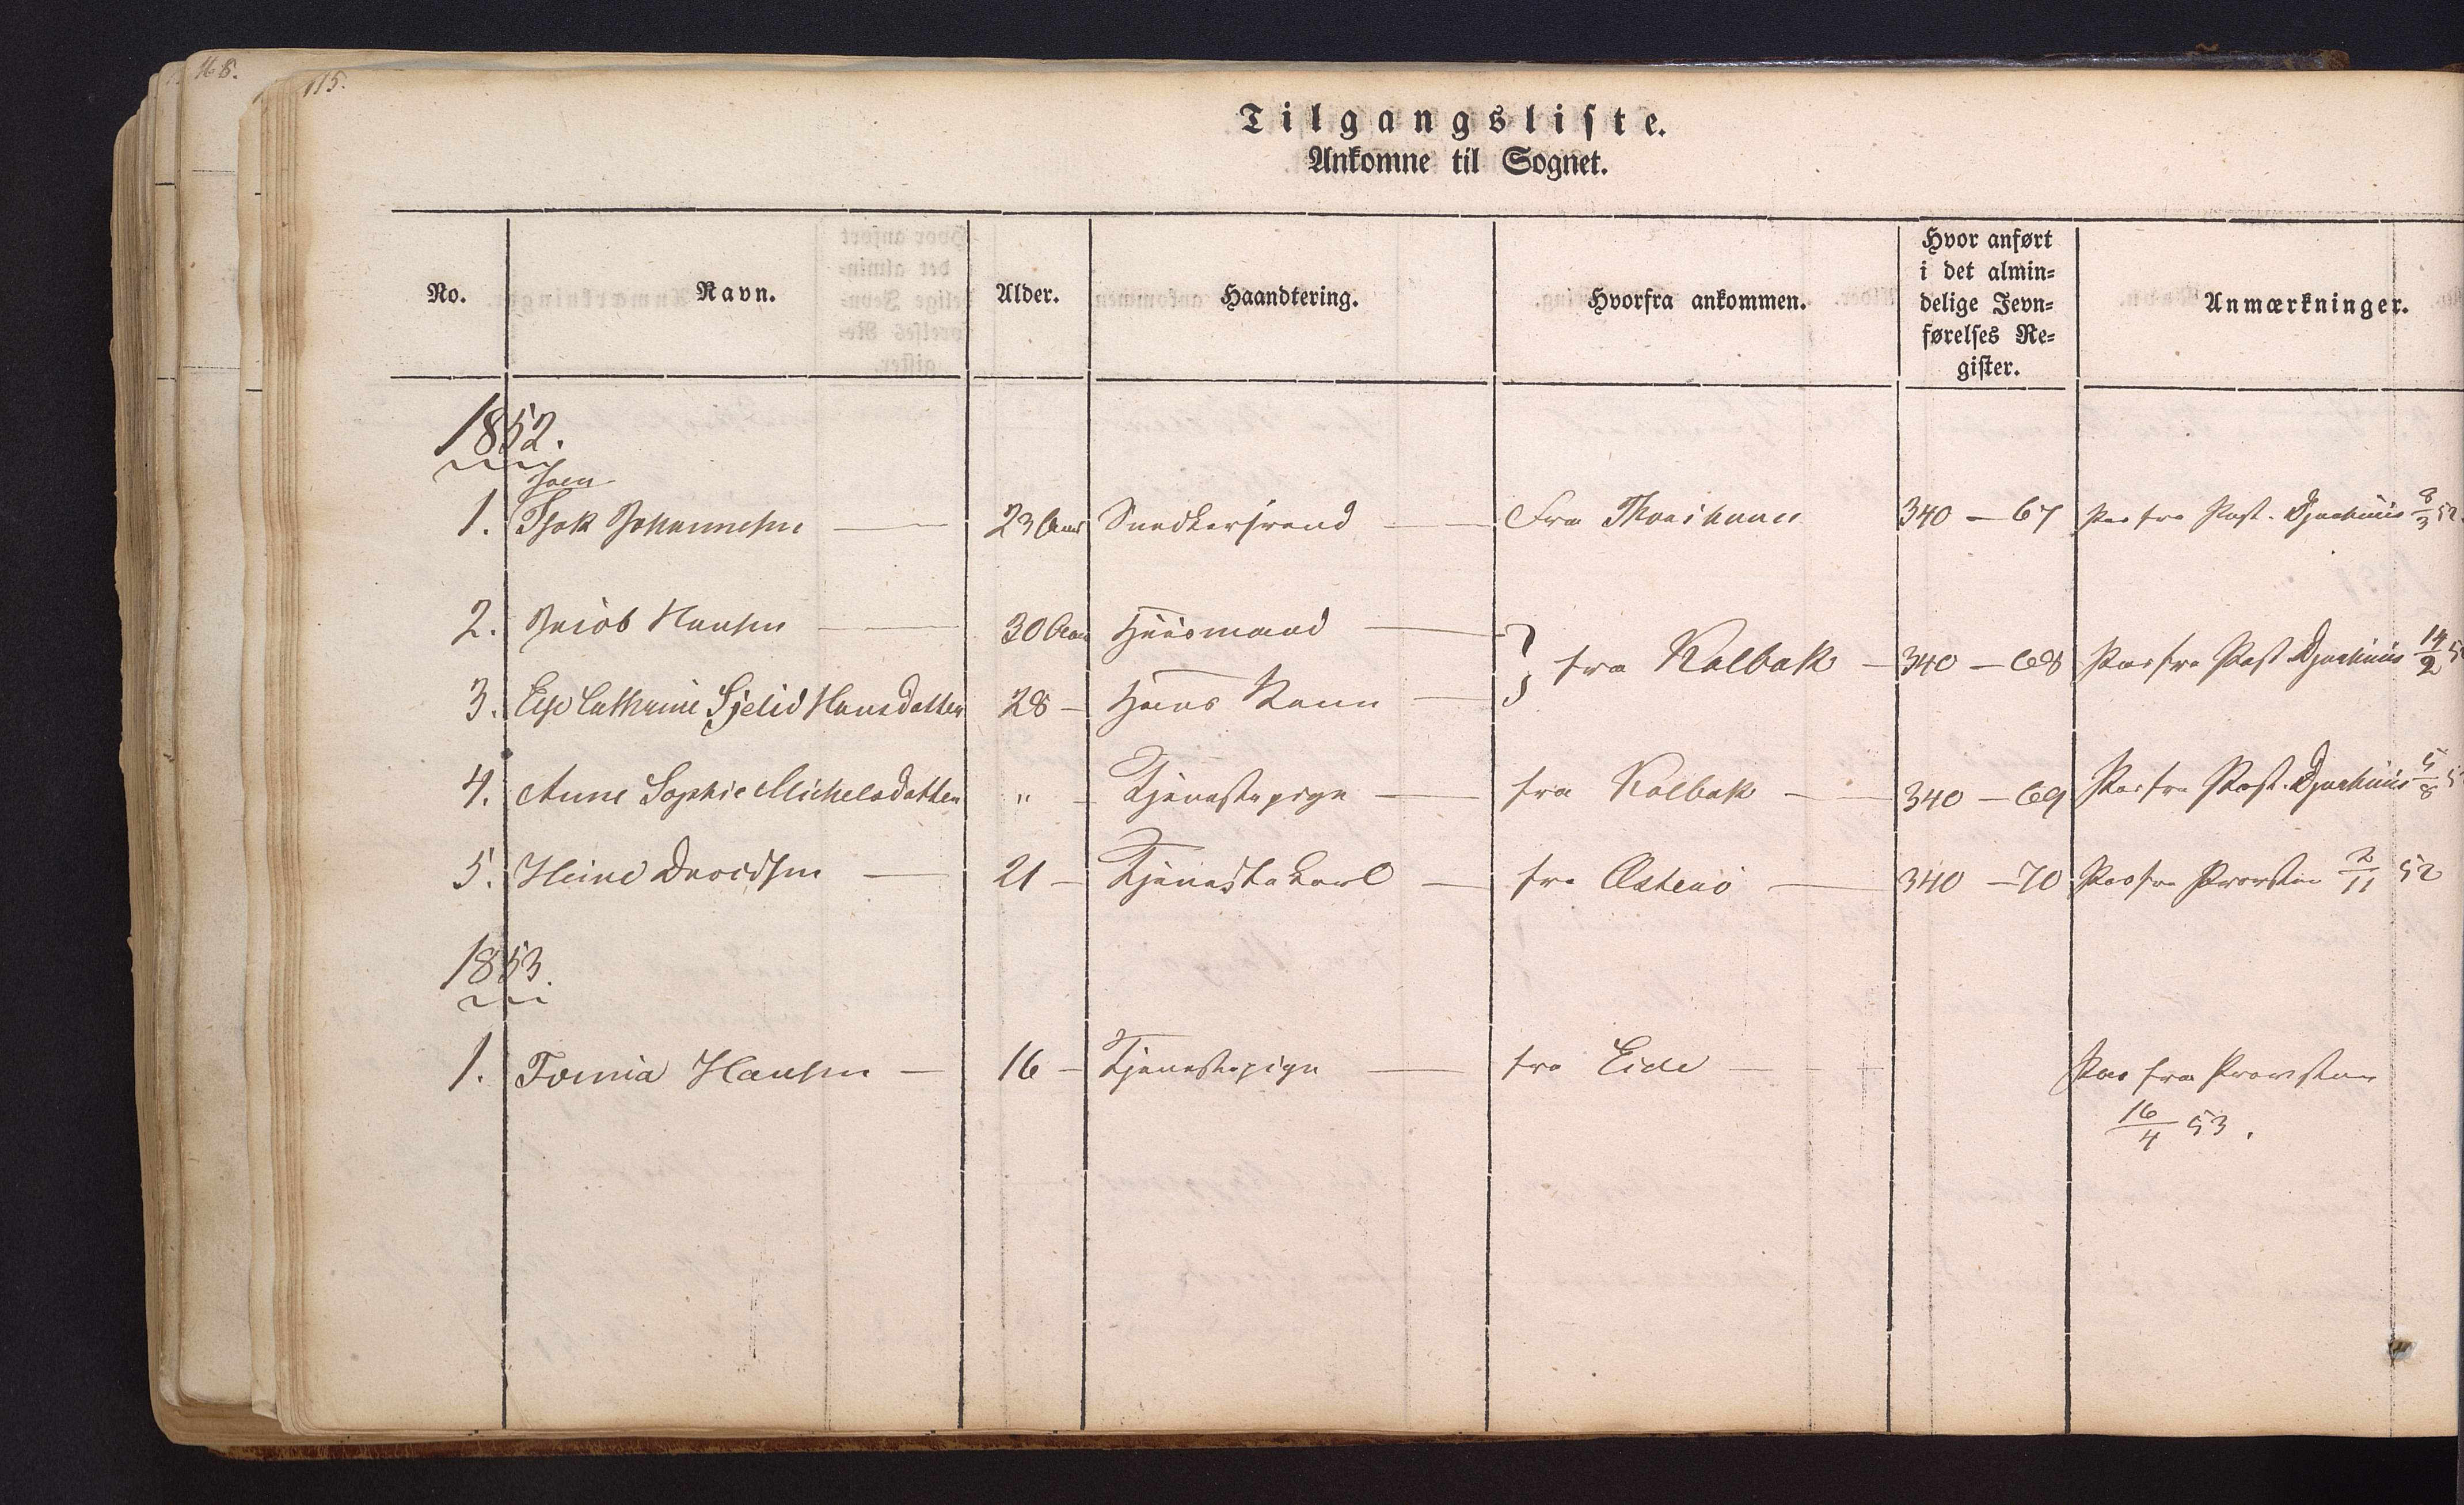 168.
115.
Tilgangsliste.
Ankomne til Sognet.
No. Navn. Alder. Haandtering. Hvorfra ankommen. Hvor anført i det almin= delige Jevn= førelses Re= gister. Anmærkninger.
1852.
Joen
1. Isak Johannesen — 23 Aar Snedkersvend — Fra Thorshavn 340 – 67 Pas fra Past. Djurhuus 8/3 52
2. Jacob Hansen — 30 Aar Huusmand —
} fra Kalbak — 340 – 68 Pas fra Past Djurhuus 14/2 5
3. Else Cathrine Sjelid Hansdatter 28 – Hans Kone —
4. Anne Sophie Michelsdatter " – Tjenestepige — fra Kalbak — 340 – 69 Pas fra Past. Djurhuus 5/8 5
5. Heine Davidsen — 21 – Tjenestekarl — fra Østerø — 340 – 70 Pas fra Provsten 2/11 52
1853.
1. Tomia Hansen — 16 – Tjenestepige — fra Eide — Pas fra Provsten
16/4 53.